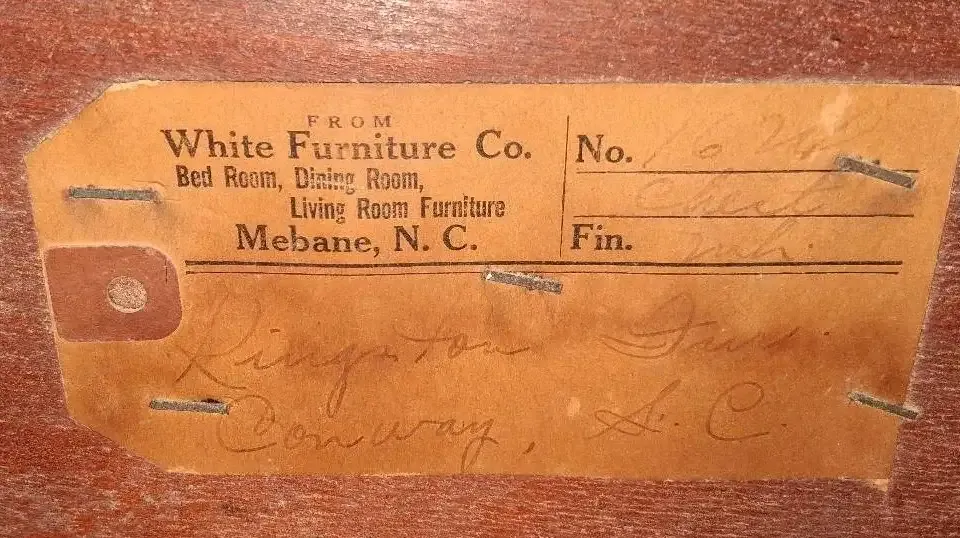 FROM
White Furniture Co.
Bed Room, Dining Room,
Living Room Furniture
Mebane, N. C.
No.
Chest
Fin.
Kingston Fur.
Conway, S. C.